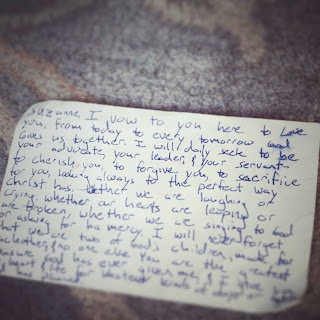 Suzanne, I vow to you here to love
you, from today to every tomorrow God
gives us together. I will daily seek to be
your advocate, your leader, & your servant-
to cherish you, to forgive you, to sacrifice
for you, looking always to the perfect way
Christ has. Whether we are laughing or
crying, if whether our hearts are leaping or
are broken, whether we are singing to God
or asking for his mercy. I will never forget
that we are two of God's children, made for
eachother, & no one else. You are the greatest
treasure God has ever given me, & I give you
my heart & life for whatever kinds of days
has planned